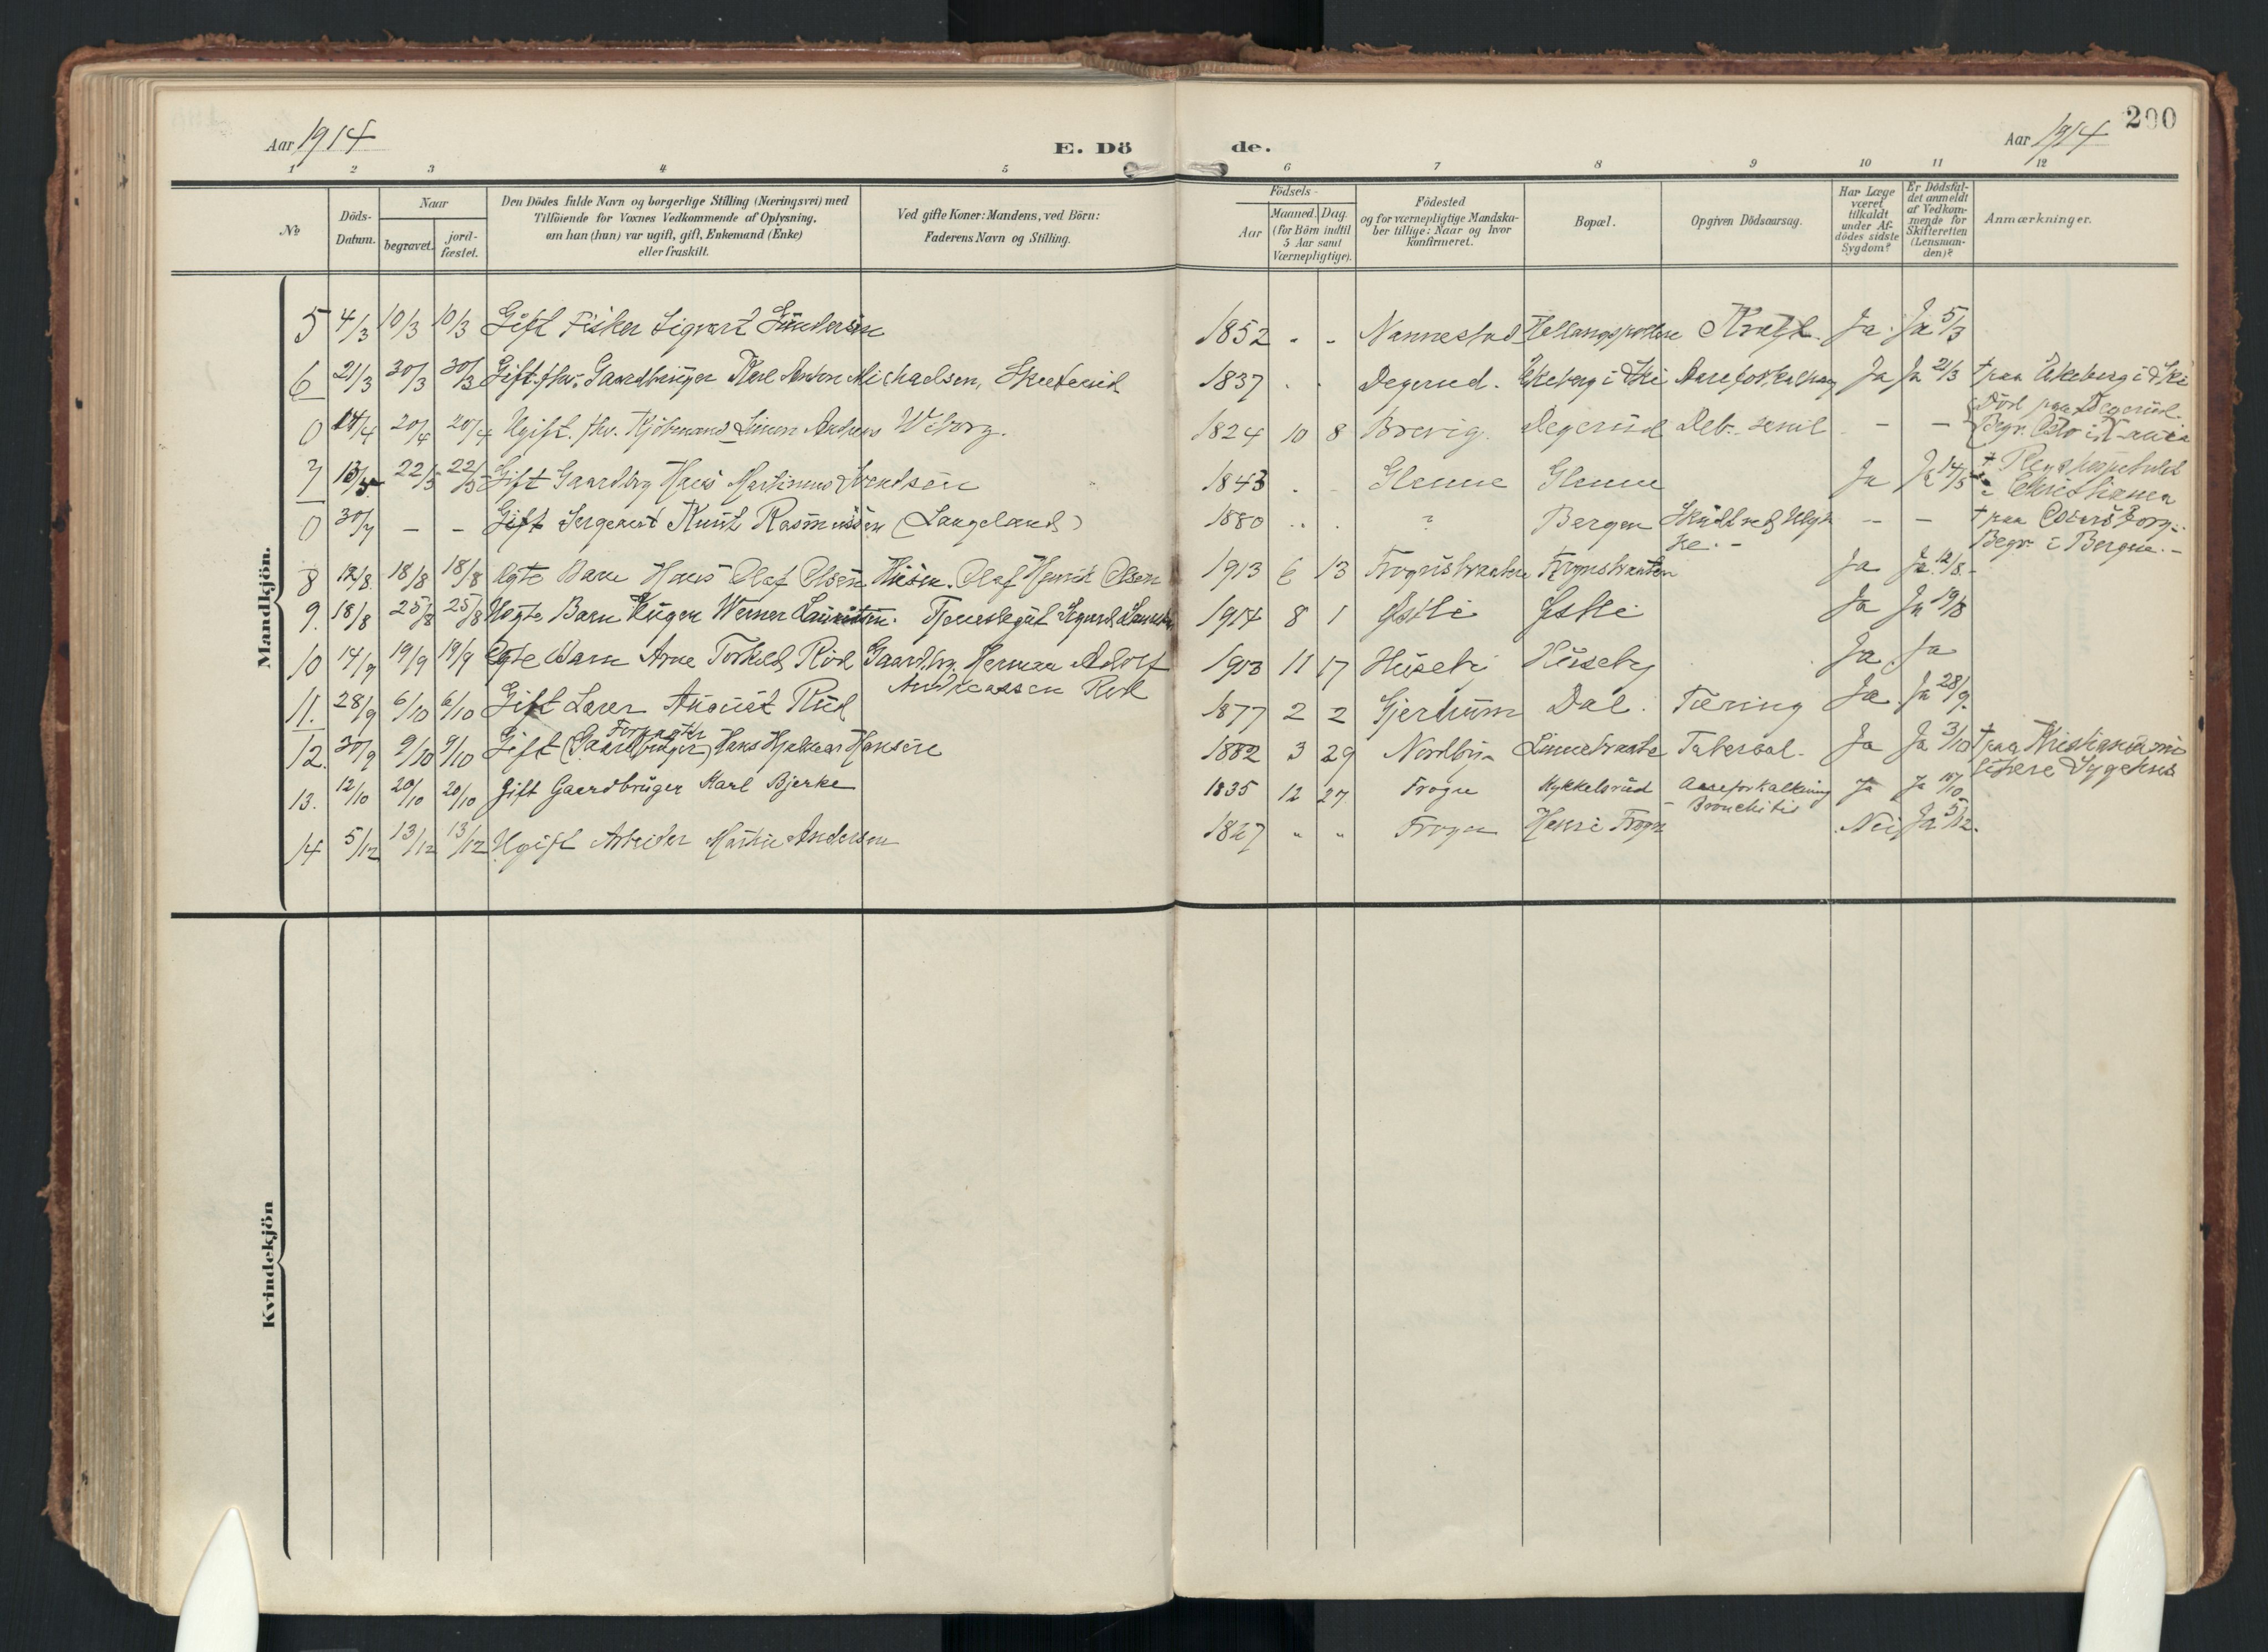 Aar 1914
E. Döde.
Aar 1914
200
1 2 3 4 5 6 7 8 9 10 11 12
№
Döds-Datum.
Naar
begravet.
jordfæstet.
Den Dödes fulde Navn og borgerlige Stilling (Næringsvei) med
Tilføiende for Voxnes Vedkommende af Oplysning,
om han (hun) var ugift, gift, Enkemand (Enke)
eller fraskilt.
Ved gifte Koner: Mandens, ved Börn:
Faderens Navn og Stilling.
Födsels-
Aar
Maaned. Dag.
(for Börn indtil
5 Aar samt
Værnepligtige).
Födested
og for værnepligtige Mandska-
ber tillige: Naar og hvor
konfirmeret.
Bopæl.
Opgiven Dödsaarsag.
Har Læge
været
tilkaldt
under Af-
dödes sidste
Sygdom?
Er Dödsfal-
det anmeldt
af Vedkom-
mende for
Skifteretten
(Lensman-
den)?
Anmærkninger.
Mandkjön.
5 4/3 10/3 10/3 Gift Fisker Sigvart Gundersen 1852 - - Nannestad Kræft. Ja. Ja 5/3
6 21/3 30/3 30/3 Gift. fhv. Gaardbruger Karl Anton Michaelsen, Skuterud 1837 . . Degerud. Ekeberg i Ski Aareforkalkning Ja Ja 21/3 † paa Ekeberg i Ski
0 14/4 20/4 20/4 Ugift. fhv. Kjöbmand Simon Andreas Wiborg. 1824 10 8 Brevig. Degerud Deb. senil - - Död paa Degerud.
Begr. Oslo i
7 13/5 22/5 22/5 Gift Gaardbr Hans Martinus Svendsen 1843 . . Glenne Glenne Ja Ja 14/5 † Rigshospitalet
i Christiania
0 30/7 - - Gift Sergeant Knut Rasmussen (Langeland) 1880 . . ? Bergen Skudt ved Ulyk
ke. - - - † paa Oscarsborg.
Begr. i Bergen. -
8 12/8 18/8 18/8 Ægte Barn Hans Olaf Olsen Husm. Olaf Henrik Olsen 1913 6 13 Frognstranden Frognstranden Ja Ja 12/8.
9. 18/8 25/8 25/8 Uægte Barn Eugen Werner Lauritsen. Tjenestegut Sigurd 1914 8 1 Østli Østli Ja Ja 19/8
10 14/9 19/9 19/9 Ægte Barn Arne Torkild Röd Gaardbr. Herman Adolf
Andreassen Röd 1913 11 17 Huseby Huseby Ja Ja
11. 28/9 6/10 6/10 Gift Lærer August Rud 1877 2 2 Gjerdrum Dal. Tæring Ja Ja 28/9.
12. 30/9 9/10 9/10 Gift (Gaardbruger) Forpagter Hans Hjalmar Hansen 1882 3 29 Nordby. Tuberkul. Ja Ja 3/10 † paa Kristiania mi
litære Sygehus
13. 12/10 20/10 20/10 Gift Gaardbruger Karl Bjerke 1835 12 27 Frogn Kykkelsrud Aareforkalkning
- Bronchitis Ja Ja
14 5/12 13/12 13/12 Ugift Arbeider Martin Andersen 1827 " " Frogn Frogn Nei Ja 5/12.
Kvindekjön